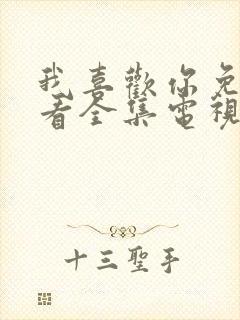 我喜歡你免
看全集電視
十三聖手